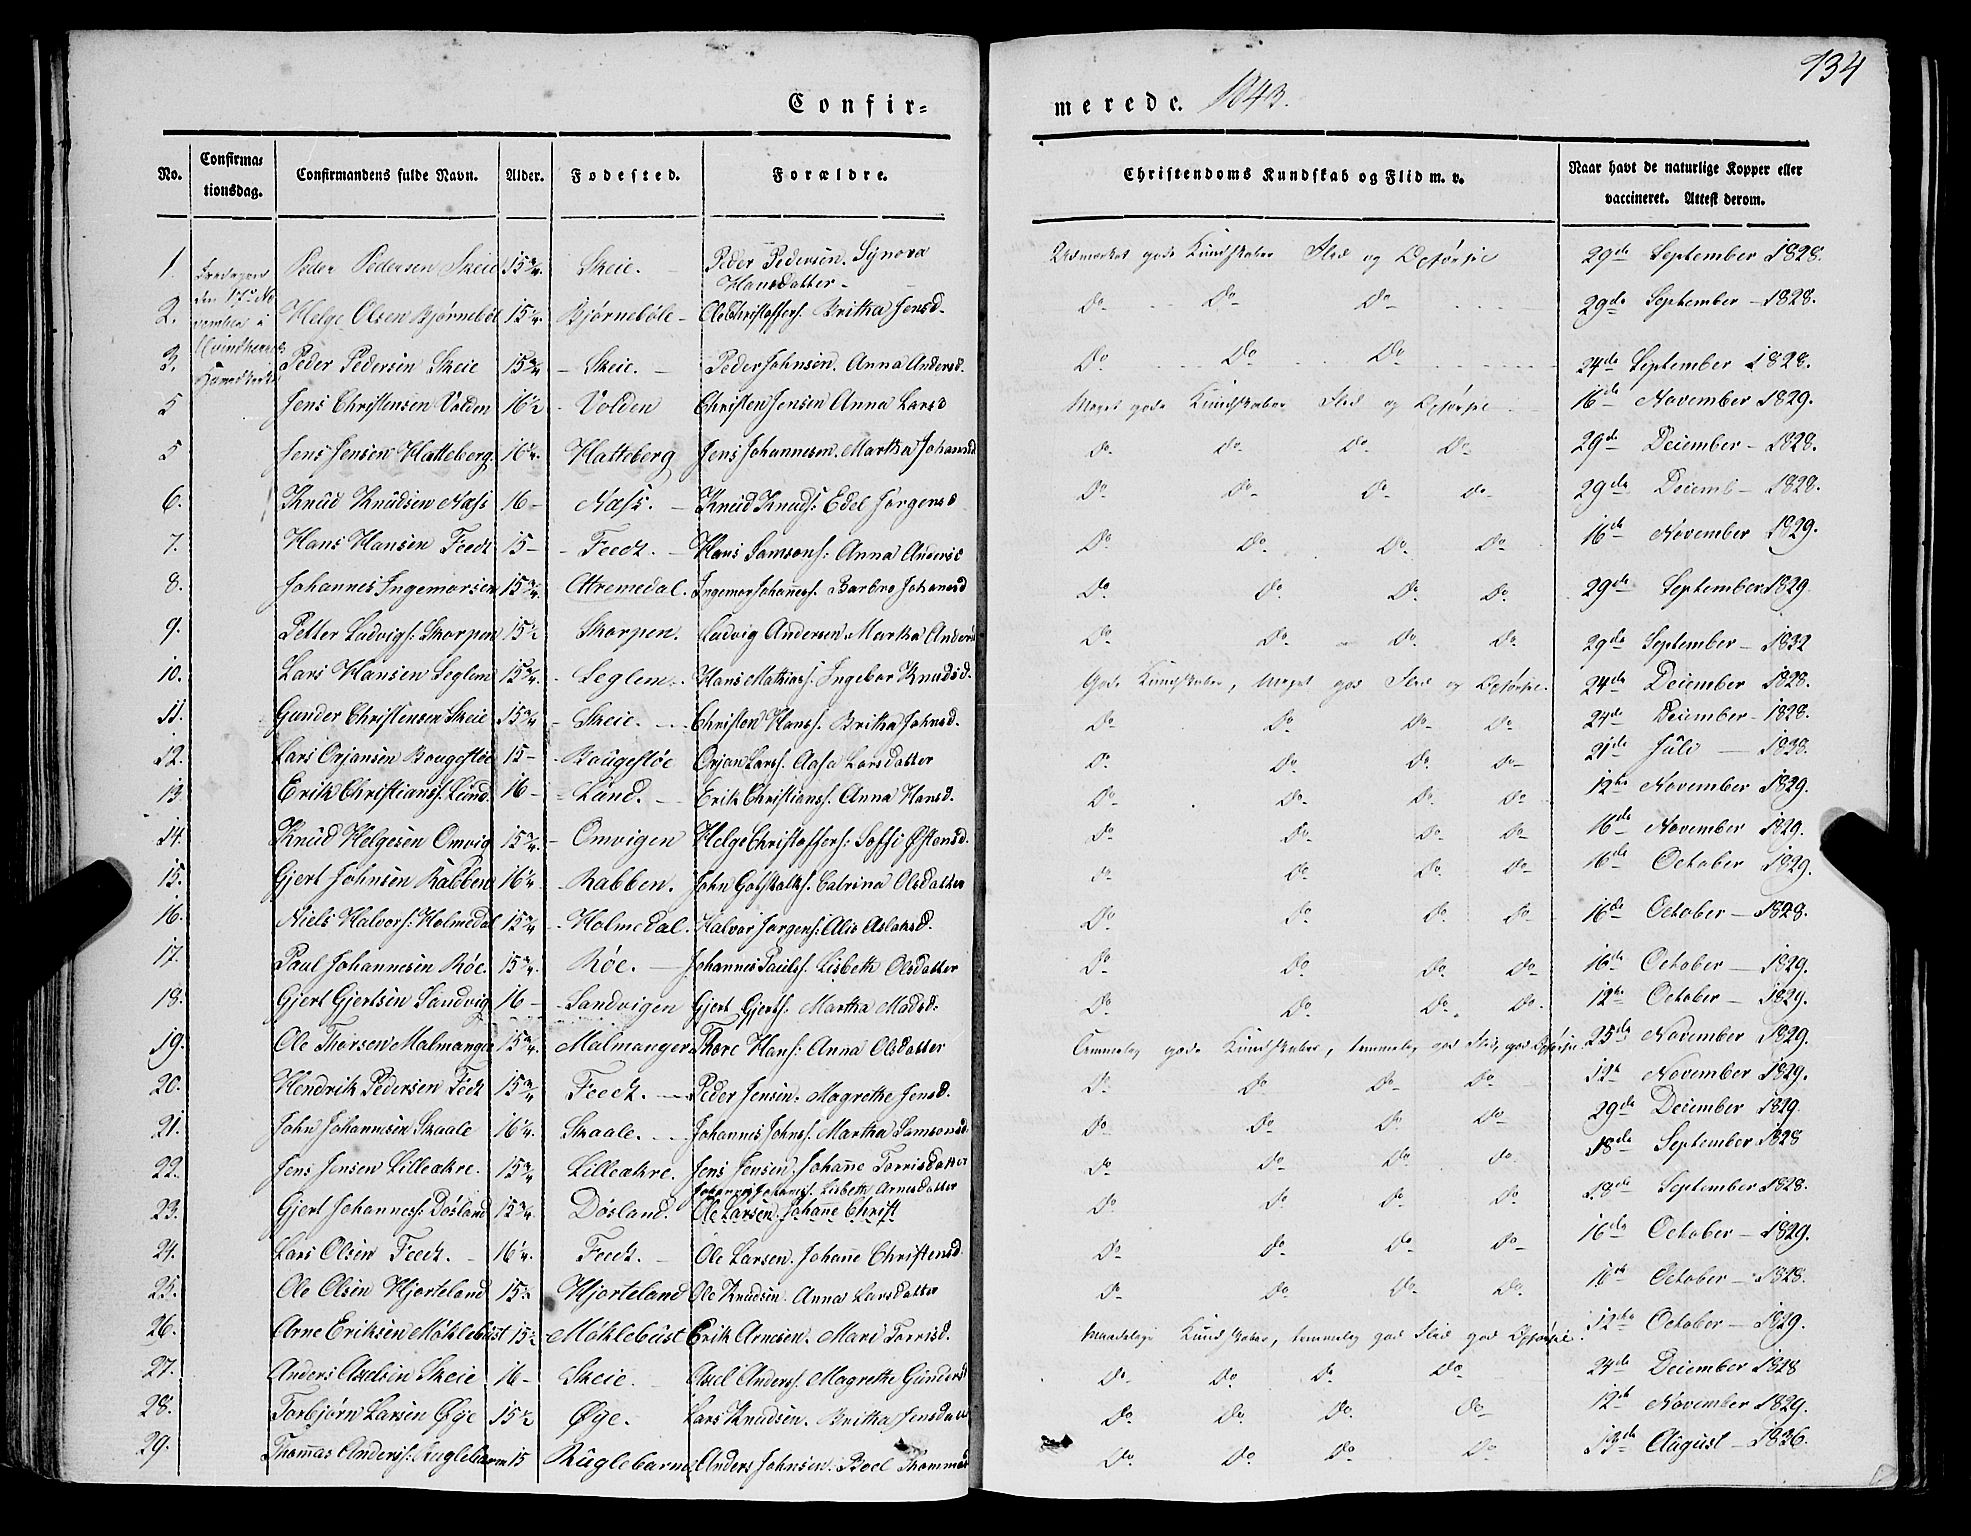 134
Confir=
merede. 1843.
No. Confirma= tionsdag. Confirmandens fulde Navn. Alder. Fødested. Forældre. Christendoms Kundskab og Flid m. v. Naar havt de naturlige Kopper eller vaccineret. Attest derom.
1. Peder Pedersen Skeie 15 3/4 Skeie. Peder Pedersen. Synova Hansdatter. gode Kundskaber Flid og Opførsel 29de September 1828.
den 17de No
vember i
2. Helge Olsen Bjørnebøl 15 3/4 Bjørnebøle Ole Christoffers: Britha Jensd. Do Do Do 29de September 1828.
3. Peder Pedersen Skeie 15 3/4 Skeie. Peder Johnsen. Anna Andersd. Do Do Do 24de September 1828.
5 Jens Christensen Volden 16 1/2 Volden Christen Jensen Anna Larsd Meget gode Kundskaber Flid og Opførsel 16de November 1829.
5 Jens Jensen Hatteberg. 16 1/4. Hatteberg Jens Johannesen. Martha Johannd Do Do Do Do 29de December 1828.
6. Knud Knudsen Næss 16 Næss. Knud Knuds: Edel Jørgensd Do Do Do Do 29de Decemb 1828.
7. Hans Hansen Feedt 15 Feedt. Hans Samsons: Anna Andersd Do Do Do Do 16de November 1829.
8. Johannes Ingemarsen 15 3/4. Attremedal. Ingemar Johanness: Barbro Johannsd Do Do Do Do 29de September 1829
9. Petter Ludvigs: Skorpen 15 1/2 Skorpen. Ludvig Andersen. Martha Andersd Do Do Do Do 29de September 1832
10. Lars Hansen Seglem 15 3/4. Seglem. Hans Mathias: Ingebor Knudsd. Gode Kundskaber, Meget god Flid og Opførsel. 24de December 1828.
11. Gunder Christensen Skeie 15 3/4 Skeie. Christen Hanss. Britha Johnsd. Do Do Do Do 24de December 1828.
12. Lars Orjansen Baugstøe 15 Baugstøe Orjan Larss. Aasa Larsdatter Do Do Do Do 21de Juli 1838.
13. Erik Christians: Lund. 16 Lund. Erik Christianss. Anna Hansd. Do Do Do Do 12te November 1829.
14. Knud Helgesen Omvig 15 3/4. Omvigen Helge Christoffers: Soffi Østensd. Do Do Do Do 16de November 1829.
15. Gjert Johnsen Rabben 16 1/4 Rabben. John Gotskalks. Catrina Olsdatter Do Do Do Do 16de October 1829.
16. Niels Halvors: Holmedal 15 3/4 Holmedal. Halvor Jorgens: Alis Aslaksd. Do Do Do Do 16de October 1828.
17. Paul Johannesen Røe. 15 3/4. Røe. Johannes Pauls. Lisbeth Olsdatter Do Do Do Do 16de October 1829.
18. Gjert Gjertsen Sandvig 16 Sandvigen Gjert Gjerts: Martha Madsd: Do Do Do Do 12te October 1829.
19. Ole Thorsen Malmanger 15 3/4. Malmanger Thore Hans: Anna Olsdatter Temmelig gode Kundskaber, temmelig god Flid, god Opførsel. 25de November 1829.
20. Hendrik Pedersen Fedt 15 3/4 Feedt. Peder Jensen. Magrethe Jensd. Do Do Do Do 12te November 1829.
21. John Johannesen Skaale 16 1/4. Skaale. Johannes Johns. Martha Samsonsd. Do Do Do Do 29de December 1829.
22. Jens Jensen Lilleækre. 15 3/4 Lilleækre. Jens Jensen. Johanne Torrisdatter Do Do Do Do 18de September 1828
23. Gjert Johanness: Døsland 15 3/4. Døsland. Johannes Johanness. Lisbeth Arnesdatter Do Do Do Do 18de September 1828.
Ole Larsen. Johanne Christ
24. Lars Olsen Feedt. 16 1/4. Feedt. Ole Larsen. Johanne Christensd. Do Do Do Do 16de October 1829.
25. Ole Olsen Hjorteland 15 1/2 Hjorteland Ole Knudsen. Anna Larsdatter Do Do Do Do 16de October 1828.
26. Arne Eriksen Møklebust 15 1/2 Møklebust Erik Arnesen. Mari Torrisd. Maadelige Kundskaber, temmelig god Flid god Opførsel. 12te October 1829.
27. Anders Axelsen Skeie 16 Skeie. Axel Anderss. Magrethe Gundersd Do Do Do Do 24de December 1828
28. Torbjørn Larsen Øye 15 1/2 Øye. Lars Knudsen. Britha Jensdatt Do Do Do Do 12te November 1829.
29. Thomas Anderss: Ruglebarm 15 Ruglebarm. Anders Johnsen. Boel Thommasd Do Do Do Do 13de August 1836.